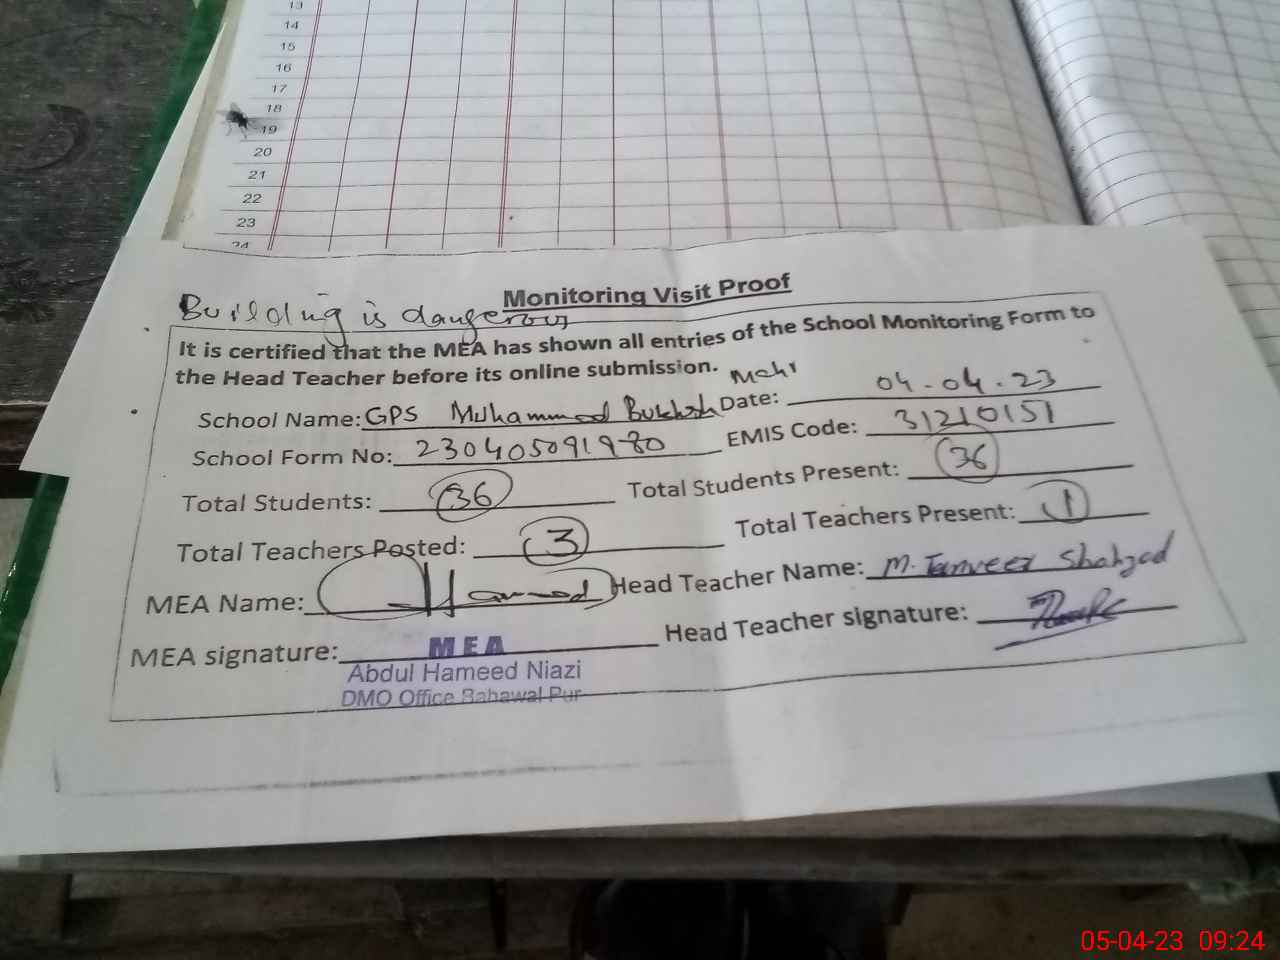 13
14
15
16
17
18
19
20
21
22
23
24
Monitoring Visit Proof
Building is dangerous
It is certified that the MEA has shown all entries of the School Monitoring Form to
the Head Teacher before its online submission.
School Name: GPS Muhammad Bukhsh Mahr Date: 04-04-23
School Form No: 230405091980 EMIS Code: 31210151
Total Students: 36 Total Students Present: 36
Total Teachers Posted: 3 Total Teachers Present: 1
MEA Name: Hameed Head Teacher Name: M. Tanveer Shahzad
MEA signature: MEA Head Teacher signature:
Abdul Hameed Niazi
DMO Office Bahawal Pur
05-04-23 09:24